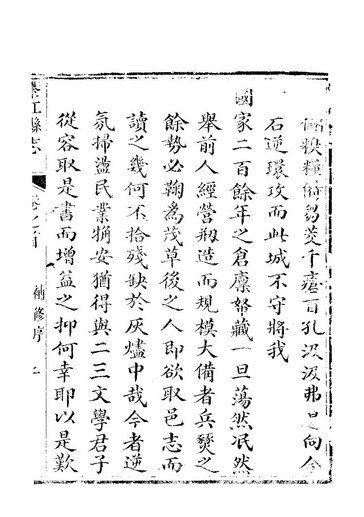 餱糗糧備芻茭千瘡百孔汲汲弗遑向令
石逆環攻而此城不守將我
國家二百餘年之倉廩帑藏一旦蕩然泯然
舉前人經營剏造而規模大備者兵燹之
餘勢必鞠為茂草後之人即欲取邑志而
讀之幾何不拾殘缺於灰燼中哉今者逆
氛掃盪民業犓安猶得與二三文學君子
從容取是書而增益之抑何幸耶以是歎
綦江縣志
卷之首
補修序
二